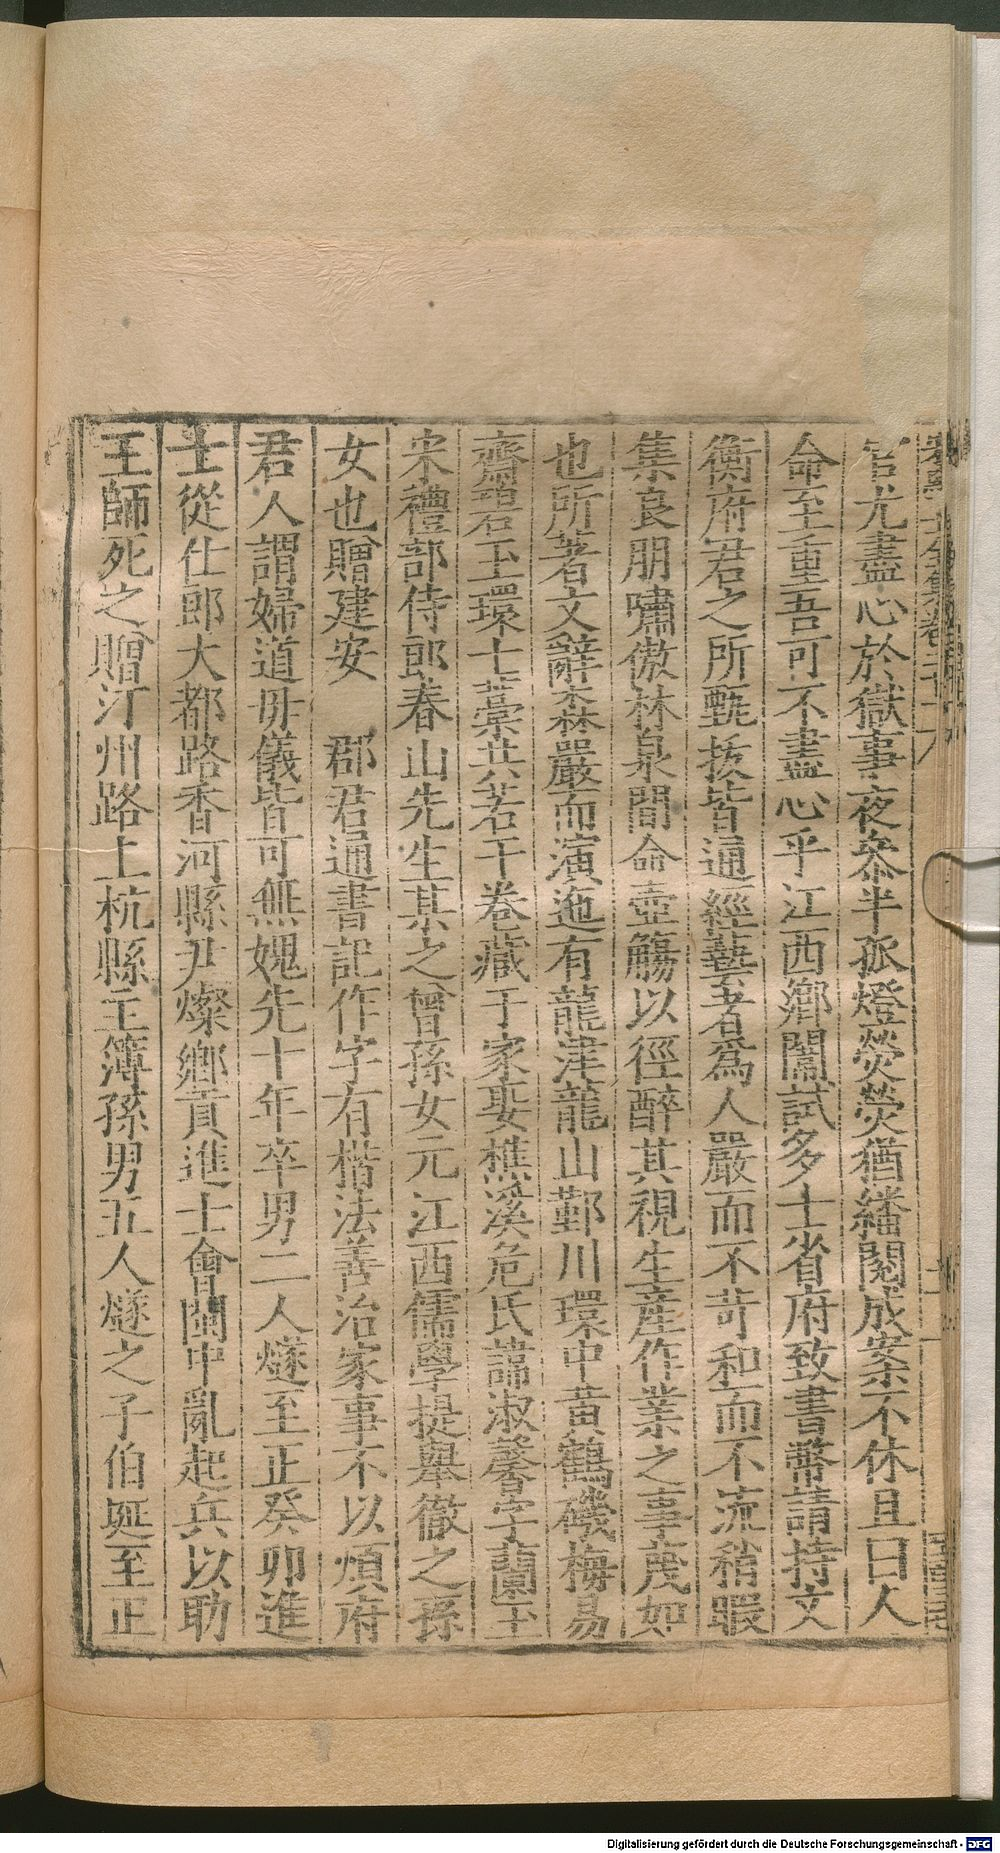 官尤盡心於獄事夜叅半孤燈熒熒猶繙閱成案不休且曰人
命至重吾可不盡心乎江西鄉闈試多士省府致書幣請持文
衡府君之所甄拔皆通經藝者爲人嚴而不苛和而不流稍暇
集良朋嘯傲林泉間命壺觴以徑醉其視生產作業之事蔑如
也所著文辭森嚴而演迤有龍津龍山鄞川環中黃鶴磯梅易
齋碧玉環七藁共若干卷藏于家娶樵溪危氏諱淑馨字蘭玉
宋禮部侍郎春山先生某之曾孫女元江西儒學提舉徹之孫
女也贈建安 郡君通書記作字有楷法善治家事不以煩府
君人謂婦道母儀皆可無媿先十年卒男二人燧至正癸卯進
士從仕郎大都路香河縣尹燦鄉貢進士會閩中亂起兵以助
王師死之贈汀州路上杭縣主簿孫男五人燧之子伯延至正
Digitalisierung gefördert durch die Deutsche Forschungsgemeinschaft - DFG